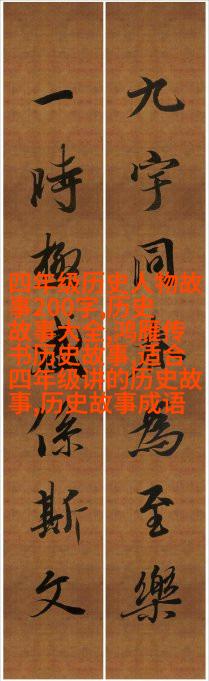 九宇同為至樂
一時係斯文
四年级历史人物故
事200字,历史
故事大全,鸿雁传
书历史故事,适合
四年级讲的历史故
事,历史故事成语